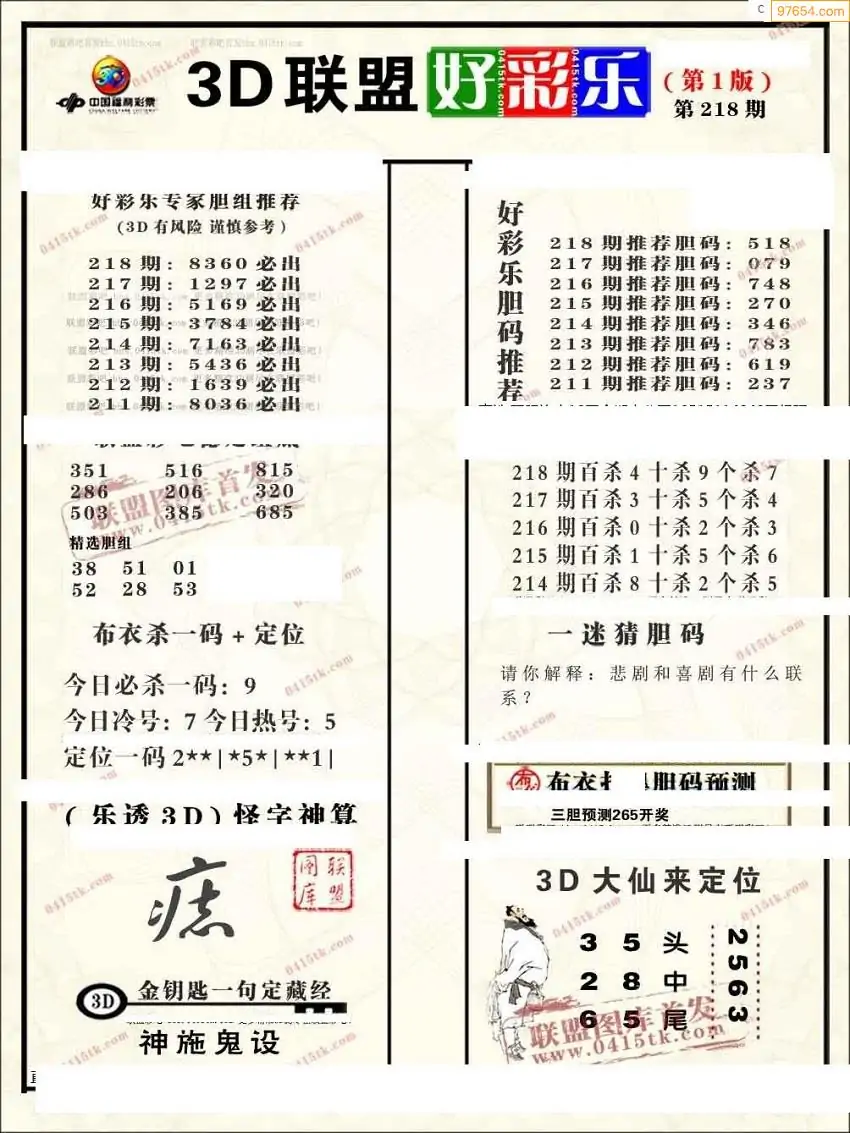 97654.com
3D联盟好彩乐
(第1版)
第218期
中国福利彩票
CHINA WELFARE LOTTERY
好彩乐专家胆组推荐
(3D有风险 谨慎参考)
218期:8360必出
217期:1297必出
216期:5169必出
215期:3784必出
214期:7163必出
213期:5436必出
212期:1639必出
211期:8036必出
351 516 815
286 206 320
503 385 685
精选胆组
38 51 01
52 28 53
布衣杀一码+定位
今日必杀一码:9
今日冷号:7 今日热号:5
定位一码2**|*5*|**1|
(乐透3D)怪字神算
痣
联盟图库
3D
金钥匙一句定藏经
神施鬼设
好彩乐胆码推荐
218期推荐胆码:518
217期推荐胆码:079
216期推荐胆码:748
215期推荐胆码:270
214期推荐胆码:346
213期推荐胆码:783
212期推荐胆码:619
211期推荐胆码:237
218期百杀4十杀9个杀7
217期百杀3十杀5个杀4
216期百杀0十杀2个杀3
215期百杀1十杀5个杀6
214期百杀8十杀2个杀5
一迷猜胆码
请你解释:悲剧和喜剧有什么联
系?
布衣 胆码预测
三胆预测265开奖
3D大仙来定位
3 5 头
2 8 中
6 5 尾
2563
联盟图库首发
www.0415tk.com